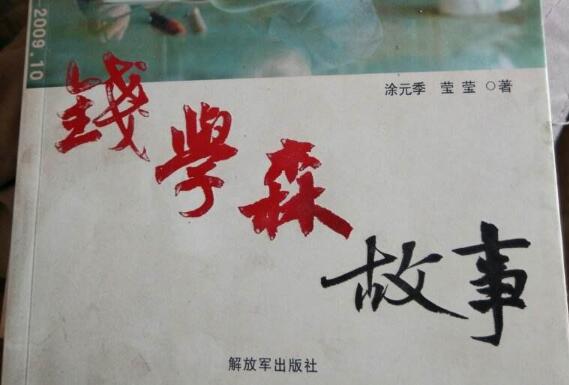 -2009.10
涂元季 莹莹 ○著
錢學森
故事
解放军出版社